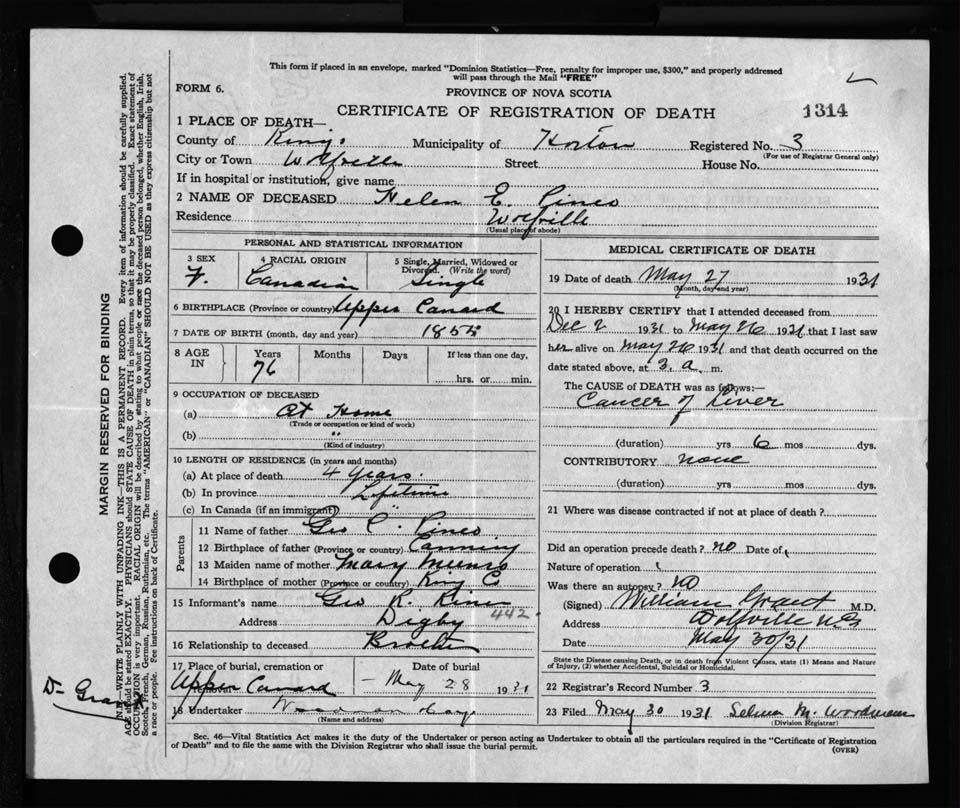 This form if placed in an envelope, marked "Dominion Statistics—Free, penalty for improper use, $300," and properly addressed
will pass through the Mail "FREE"
FORM 6.
PROVINCE OF NOVA SCOTIA
CERTIFICATE OF REGISTRATION OF DEATH
1314
1 PLACE OF DEATH—
County of Kings Municipality of Horton Registered No. 3
(For use of Registrar General only)
City or Town Wolfville Street House No.
If in hospital or institution, give name
2 NAME OF DECEASED Helen E. Pineo
Residence Wolfville
(Usual place of abode)
PERSONAL AND STATISTICAL INFORMATION
3 SEX 4 RACIAL ORIGIN 5 Single, Married, Widowed or
Divorced. (Write the word)
F. Canadian Single
6 BIRTHPLACE (Province or country) Upper Canard
7 DATE OF BIRTH (month, day and year) 1855
8 AGE IN Years Months Days If less than one day.
76 hrs. or min.
9 OCCUPATION OF DECEASED
(a) At Home
(Trade or occupation or kind of work)
(b) "
(Kind of industry)
10 LENGTH OF RESIDENCE (in years and months)
(a) At place of death 4 years
(b) In province Lifetime
(c) In Canada (if an immigrant) "
Parents
11 Name of father Geo C. Pineo
12 Birthplace of father (Province or country) Canning
13 Maiden name of mother Mary Munro
14 Birthplace of mother (Province or country) King C
15 Informant's name Geo R. Pineo
442
Address Digby
16 Relationship to deceased Brother
17 Place of burial, cremation or Date of burial
Upper Canard May 28 1931
18 Undertaker Woodman
(Name and address)
MEDICAL CERTIFICATE OF DEATH
19 Date of death May 27 1931
(Month, day and year)
20 I HEREBY CERTIFY that I attended deceased from
Dec 2 1931 to May 26 1931 that I last saw
her alive on May 26 1931 and that death occurred on
date stated above, at 3 a. m.
The CAUSE of DEATH was as follows:—
Cancer of Liver
(duration) yrs 6 mos dys.
CONTRIBUTORY none
(duration) yrs. mos. dys.
21 Where was disease contracted if not at place of death?
Did an operation precede death? no Date of
Nature of operation
Was there an autopsy? no
(Signed) William Grant M.D.
Address Wolfville N.S.
Date May 30/31
State the Disease causing Death, or in death from Violent Causes, state (1) Means and Nature
of Injury, (2) whether Accidental, Suicidal or Homicidal.
22 Registrar's Record Number 3
23 Filed May 30 1931 Selina M. Woodman
(Division Registrar)
Sec. 46—Vital Statistics Act makes it the duty of the Undertaker or person acting as Undertaker to obtain all the particulars required in the "Certificate of Registration
of Death" and to file the same with the Division Registrar who shall issue the burial permit.
(OVER)
MARGIN RESERVED FOR BINDING
N.B.—WRITE PLAINLY WITH UNFADING INK—THIS IS A PERMANENT RECORD. Every item of information should be carefully supplied.
AGE should be stated EXACTLY. PHYSICIANS should STATE CAUSE OF DEATH in plain terms, so that it may be properly classified. Exact statement of
OCCUPATION is very important. RACIAL ORIGIN will be described by stating to what people or race the deceased person belonged, whether English, Irish,
Scotch, French, German, Russian, Ruthenian, etc. The terms "AMERICAN" or "CANADIAN" SHOULD NOT BE USED as they express citizenship but not
a race or people. See instructions on back of Certificate.
Dr Grant